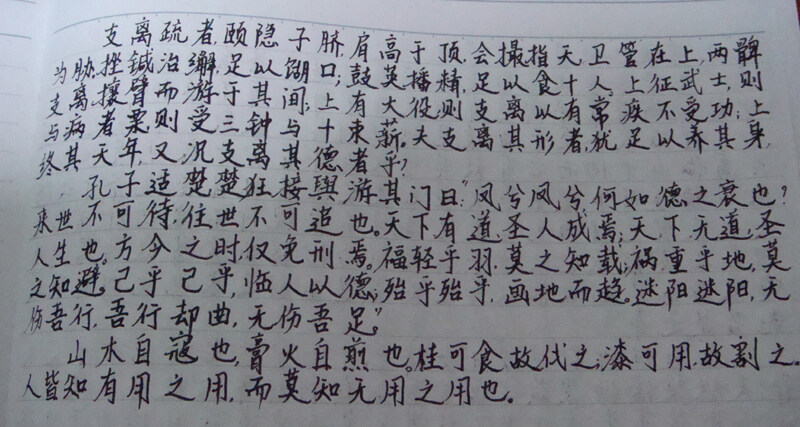 支离疏者,颐隐于脐,肩高于顶,会撮指天,卫管在上,两髀
为胁。挫鍼治繲,足以餬口;鼓荚播精,足以食十人。上征武士,则
支离攘臂而游于其间;上有大役,则支离以有常疾不受功;上
与病者粟则受三钟与十束薪。夫支离其形者,犹足以养其身,
终其天年,又况支离其德者乎?
孔子适楚,楚狂接舆游其门曰:“凤兮凤兮,何如德之衰也?
来世不可待,往世不可追也。天下有道,圣人成焉;天下无道,圣
人生也。方今之时,仅免刑焉。福轻乎羽,莫之知载;祸重乎地,莫
之知避。已乎已乎,临人以德;殆乎殆乎,画地而趋。迷阳迷阳,无
伤吾行,吾行却曲,无伤吾足。”
山木自寇也,膏火自煎也。桂可食故伐之;漆可用,故割之。
人皆知有用之用,而莫知无用之用也。